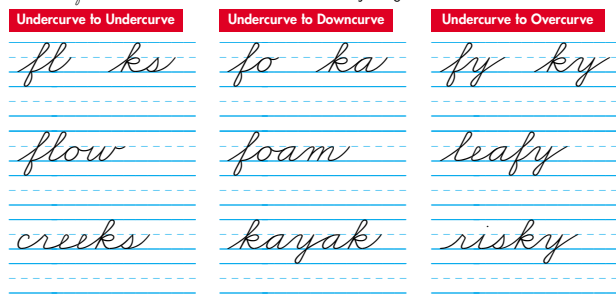 Undercurve to Undercurve
fl ks
flow
creeks
Undercurve to Downcurve
fo ka
foam
kayak
Undercurve to Overcurve
fy ky
leafy
risky